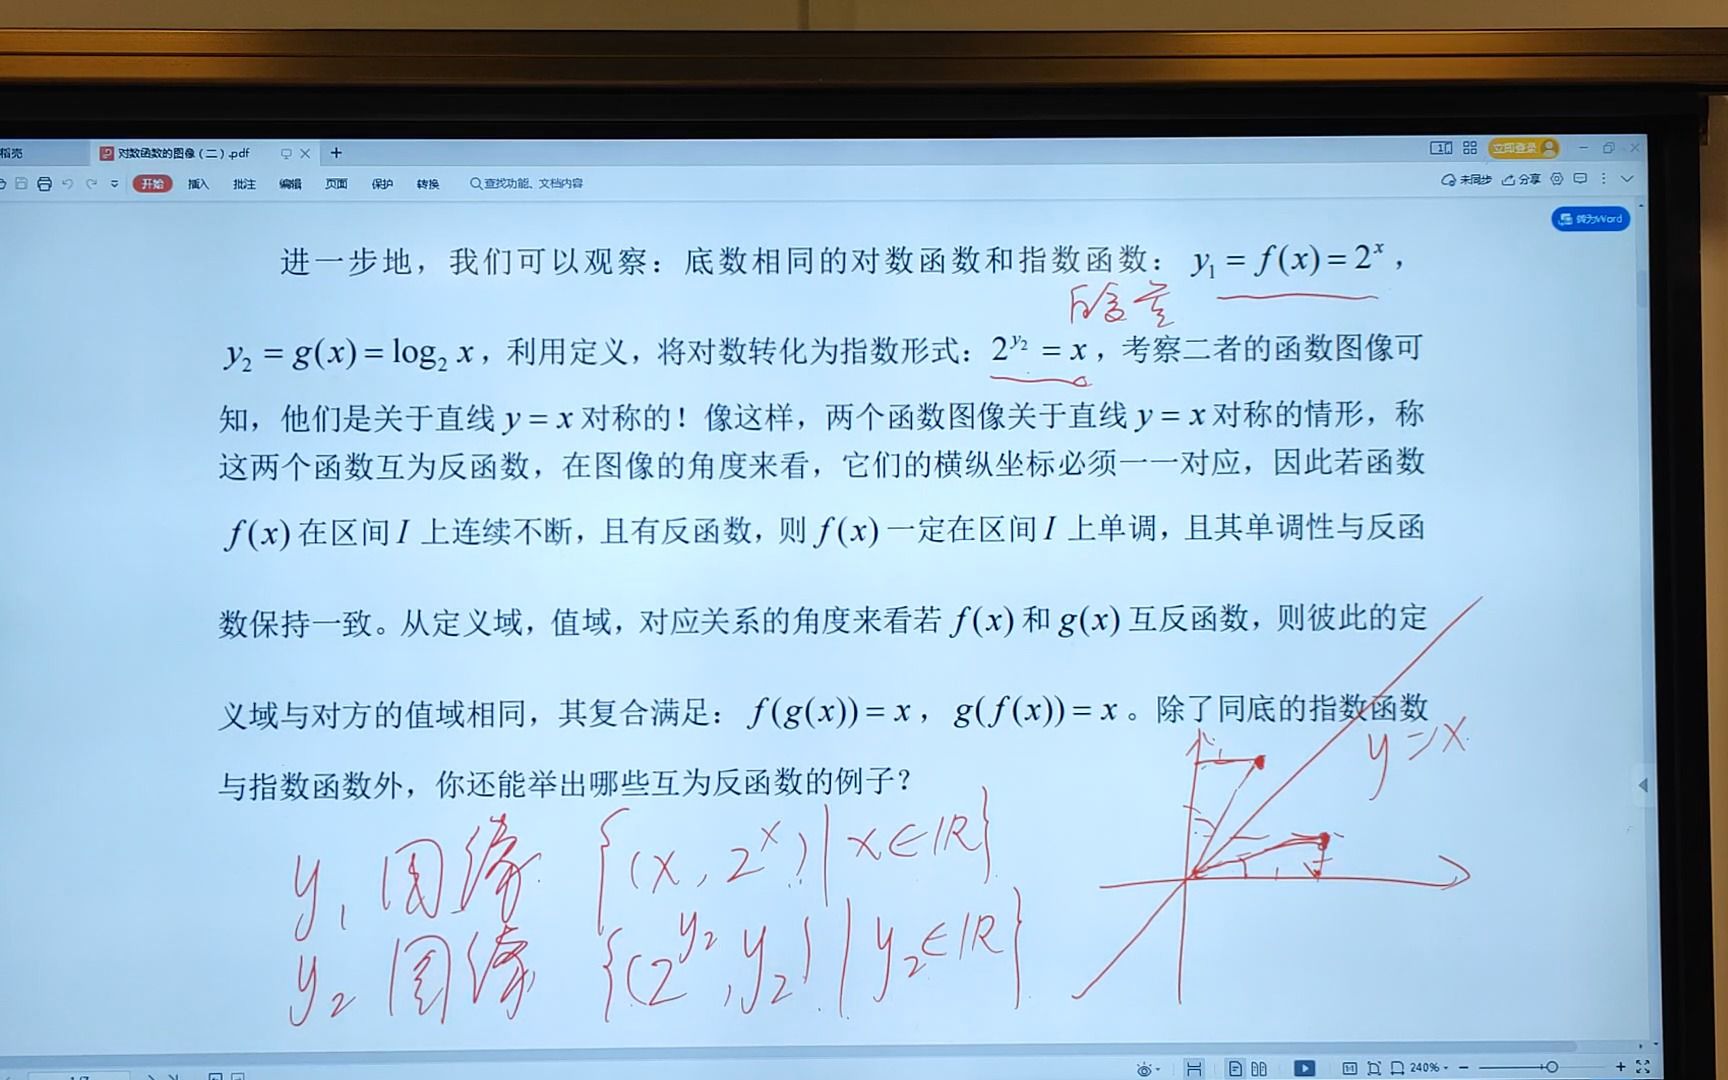 稻壳 对数函数的图像（二）.pdf + 立即登录
开始 插入 批注 编辑 页面 保护 转换 查找功能、文档内容 未同步 分享
转为Word
进一步地，我们可以观察：底数相同的对数函数和指数函数： y₁ = f(x) = 2ˣ，
y₂ = g(x) = log₂ x，利用定义，将对数转化为指数形式：2^{y₂} = x，考察二者的函数图像可
知，他们是关于直线 y = x 对称的！像这样，两个函数图像关于直线 y = x 对称的情形，称
这两个函数互为反函数，在图像的角度来看，它们的横纵坐标必须一一对应，因此若函数
f(x) 在区间 I 上连续不断，且有反函数，则 f(x) 一定在区间 I 上单调，且其单调性与反函
数保持一致。从定义域，值域，对应关系的角度来看若 f(x) 和 g(x) 互反函数，则彼此的定
义域与对方的值域相同，其复合满足： f(g(x)) = x， g(f(x)) = x 。除了同底的指数函数
与指数函数外，你还能举出哪些互为反函数的例子？
y=x
y₁ 图像 {(x, 2ˣ) | x∈R}
y₂ 图像 {(2^{y₂}, y₂) | y₂∈R}
240%